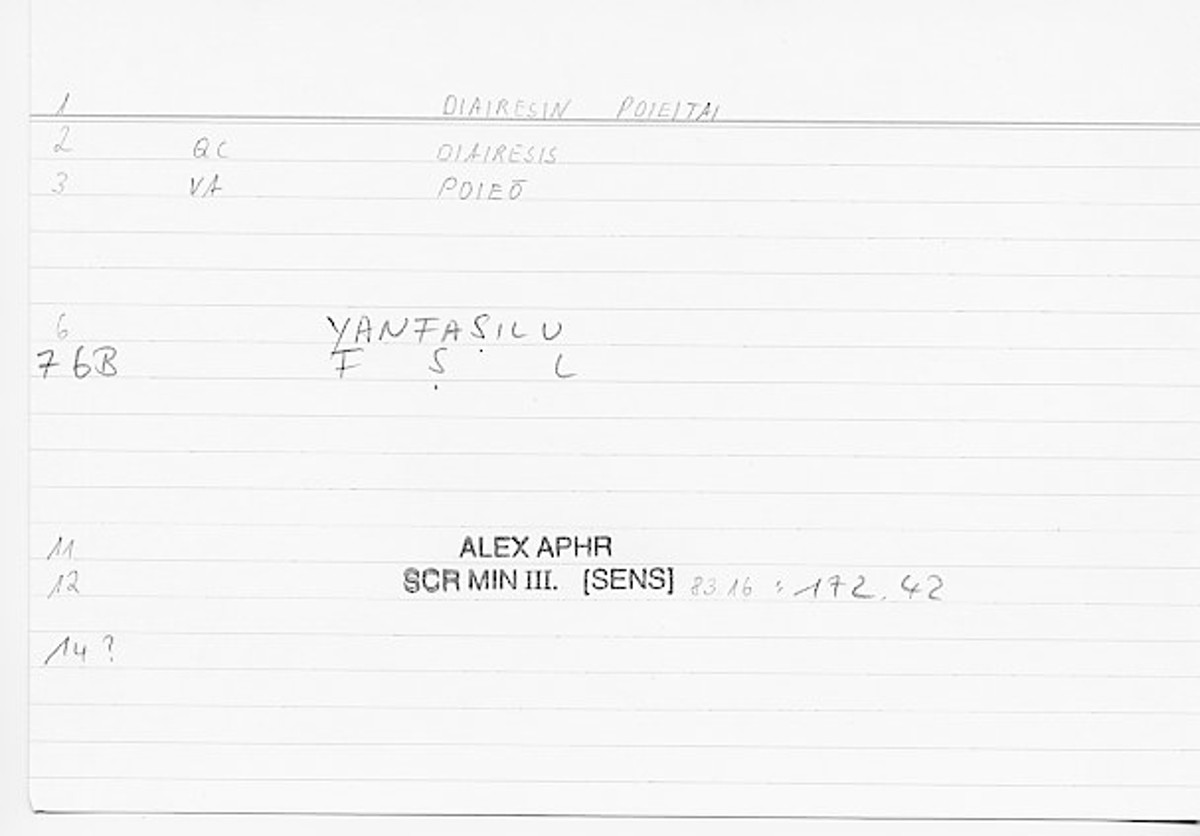 1 DIAIRESIN POIEITAI
2 QC DIAIRESIS
3 VA POIEŌ
6 YANFAṢILU
7 6B F Ṣ L
11 ALEX APHR
12 SCR MIN III. [SENS] 83.16 : 172.42
14 ?